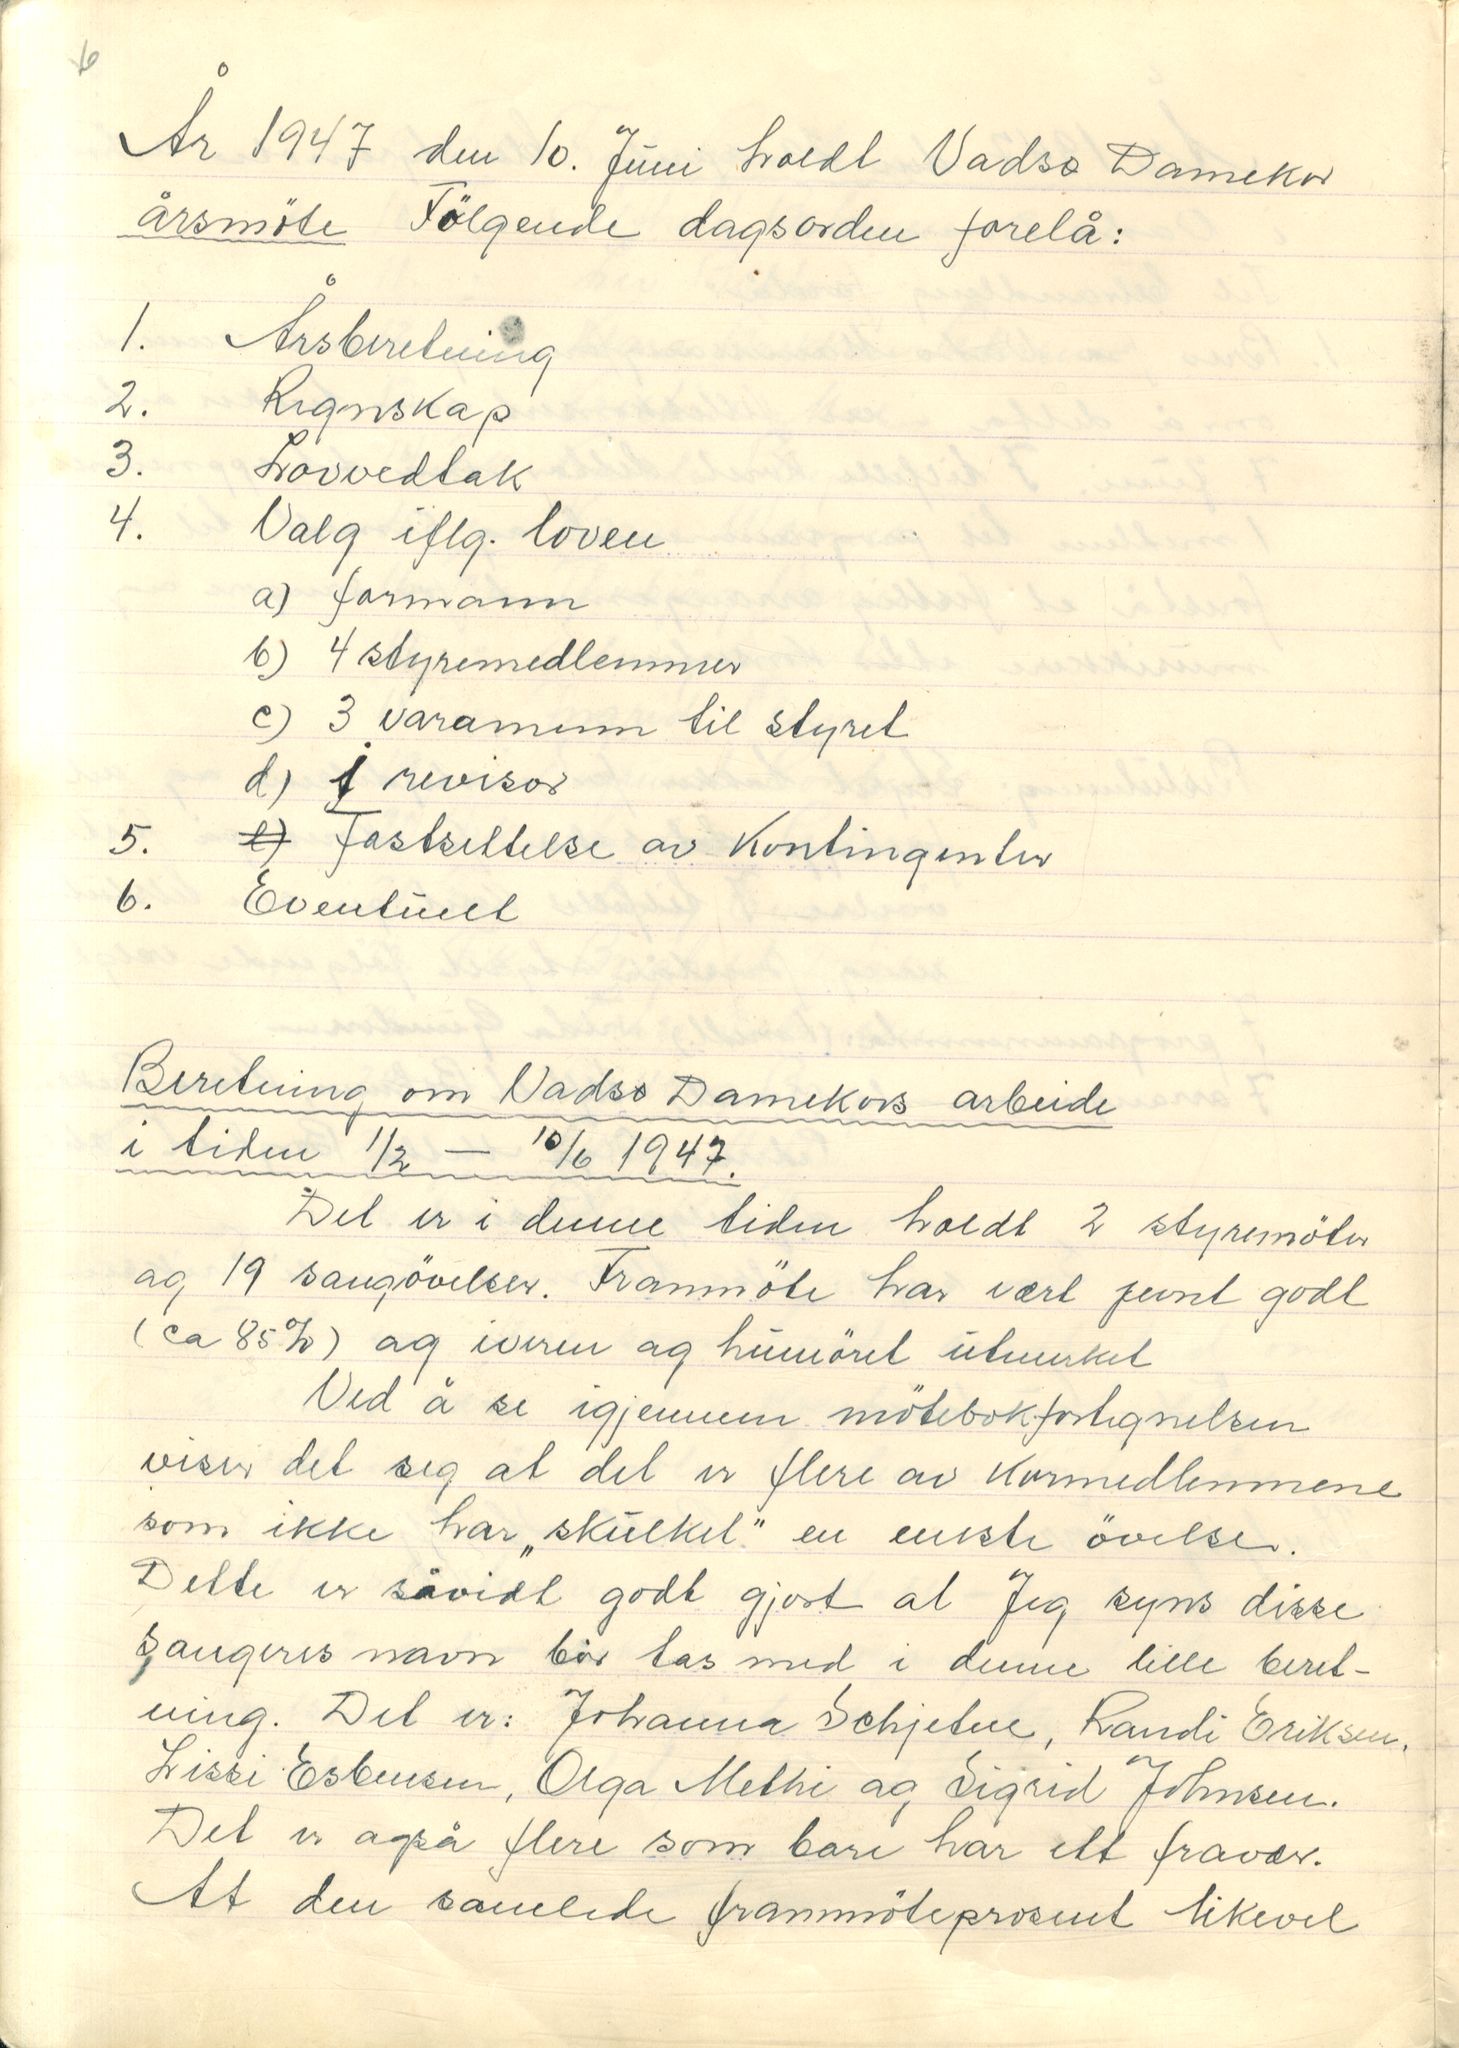 6
År 1947 den 10. Juni holdt Vadsø Damekor
årsmöte Fölgende dagsorden forelå:
1. Årsberetning
2. Regnskap
3. Lovvedtak
4. Valg iflg. loven
a) formann
b) 4 styremedlemmer
c) 3 varamenn til styret
d) 1 revisor
5. e) Fastsettelse av Kontingenter
6. Eventuelt
Beretning om Vadsø Damekors arbeide
i tiden 1/2 — 10/6 1947.
Det er i denne tiden holdt 2 styremöter
og 19 sangövelser. Frammöte har vært jevnt godt
(ca 85%) og iveren og humöret utmerket
Ved å se igjennem mötebokfortegnelsen
viser det seg at det er flere av Kormedlemmene
som ikke har „skulket" en enste övelse.
Dette er såvidt godt gjort at Jeg syns disse
sangeres navn bör tas med i denne lille beret-
ning. Det er: Johanna Schjetne, Randi Eriksen,
Lissi Esbensen, Olga Methi og Sigrid Johnsen.
Det er også flere som bare har ett fravær.
At den samlede frammöteprosent likevel